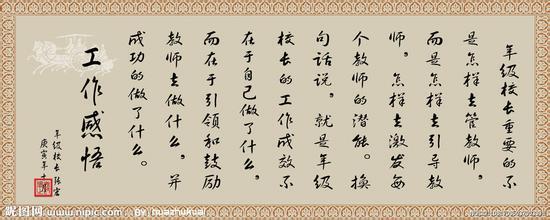 年级校长重要的不
是怎样去管教师，
而是怎样去引导教
师，怎样去激发每
个教师的潜能。换
句话说，就是年级
校长的工作成效不
在于自己做了什么，
而在于引领和鼓励
教师去做什么，并
成功的做了什么。
工作感悟
年级校长张宏
庚寅年
昵图网 www.nipic.com By: huazhukuai